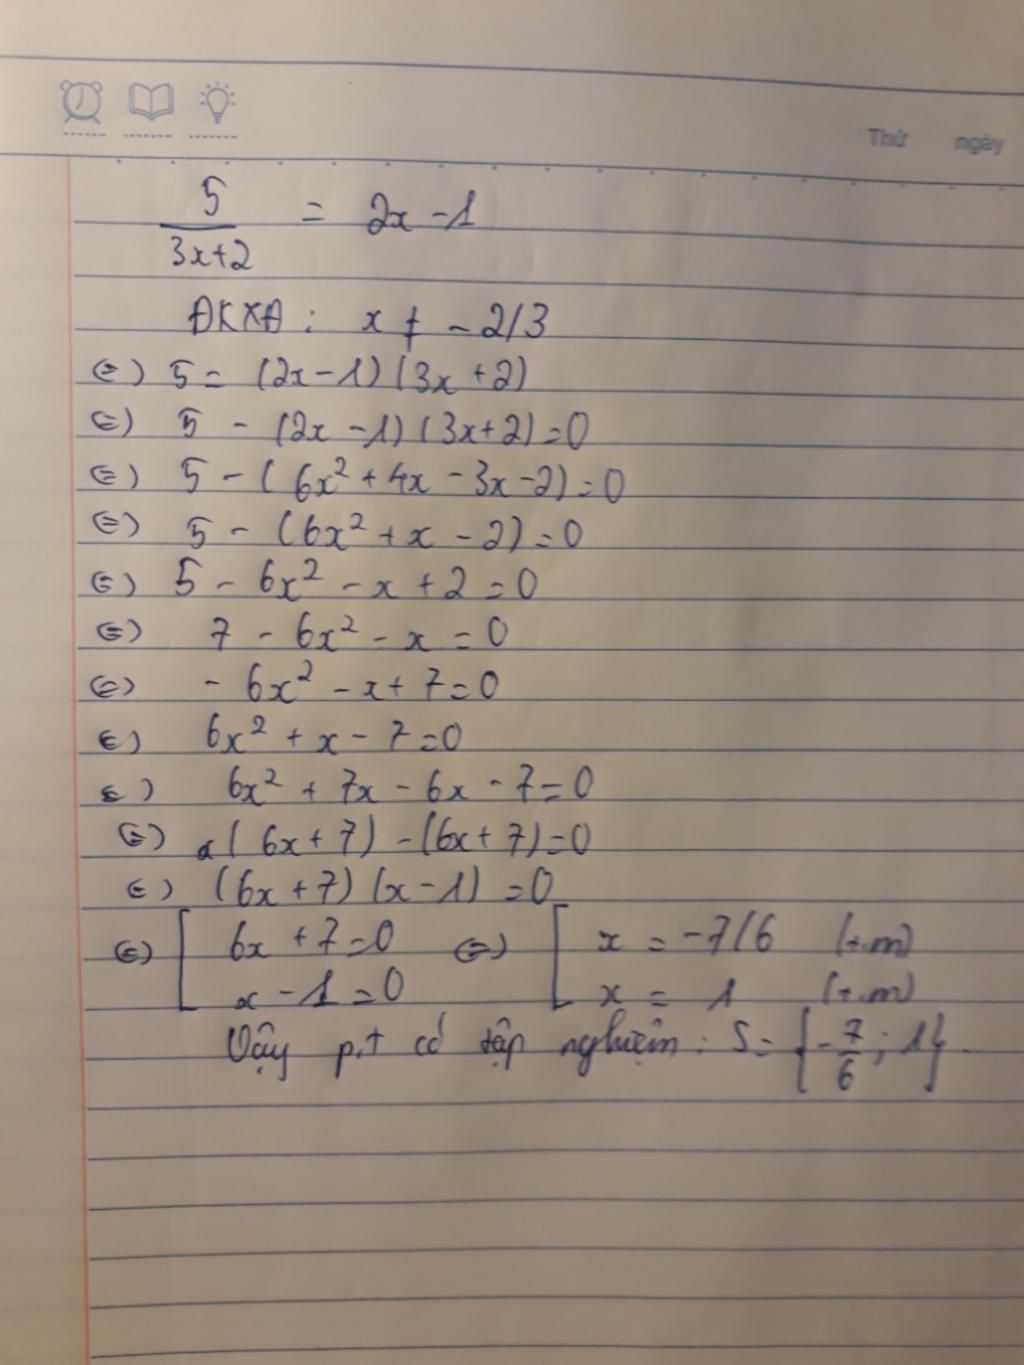 Thứ ngày
5/(3x+2) = 2x - 1
ĐKXĐ : x ≠ - 2/3
(=) 5 = (2x - 1) (3x + 2)
(=) 5 - (2x - 1) (3x + 2) = 0
(=) 5 - ( 6x² + 4x - 3x - 2) = 0
(=) 5 - (6x² + x - 2) = 0
(=) 5 - 6x² - x + 2 = 0
(=) 7 - 6x² - x = 0
(=) - 6x² - x + 7 = 0
(=) 6x² + x - 7 = 0
(=) 6x² + 7x - 6x - 7 = 0
(=) x( 6x + 7) - (6x + 7) = 0
(=) (6x + 7) (x - 1) = 0
(=) [ 6x + 7 = 0 (=) [ x = -7/6 (t.m)
x - 1 = 0 x = 1 (t.m)
Vậy p.t có tập nghiệm : S = { -7/6 ; 1 } .